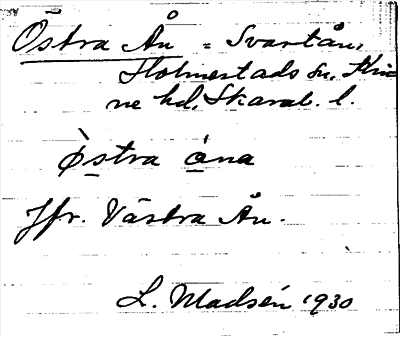 Östra Ån = Svartån,
Holmestads sn, Kin-
ne hd, Skarab. l.
östra åna
Jfr. Västra Ån.
L. Madsén 1930